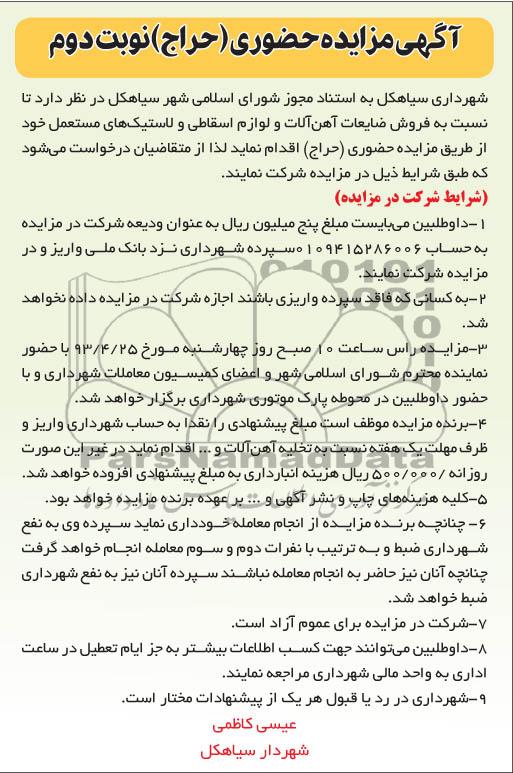 آگهی مزایده حضوری (حراج) نوبت دوم
شهرداری سیاهکل به استناد مجوز شورای اسلامی شهر سیاهکل در نظر دارد تا
نسبت به فروش ضایعات آهن‌آلات و لوازم اسقاطی و لاستیک‌های مستعمل خود
از طریق مزایده حضوری (حراج) اقدام نماید لذا از متقاضیان درخواست می‌شود
که طبق شرایط ذیل در مزایده شرکت نمایند.
(شرایط شرکت در مزایده)
۱-داوطلبین می‌بایست مبلغ پنج میلیون ریال به عنوان ودیعه شرکت در مزایده
به حساب ۰۱۰۹۴۱۵۲۸۶۰۰۶سپرده شهرداری نزد بانک ملی واریز و در
مزایده شرکت نمایند.
۲-به کسانی که فاقد سپرده واریزی باشند اجازه شرکت در مزایده داده نخواهد
شد.
۳-مزایده راس ساعت ۱۰ صبح روز چهارشنبه مورخ ۹۳/۴/۲۵ با حضور
نماینده محترم شورای اسلامی شهر و اعضای کمیسیون معاملات شهرداری و با
حضور داوطلبین در محوطه پارک موتوری شهرداری برگزار خواهد شد.
۴-برنده مزایده موظف است مبلغ پیشنهادی را نقدا به حساب شهرداری واریز و
ظرف مهلت یک هفته نسبت به تخلیه آهن‌آلات و ... اقدام نماید در غیر این صورت
روزانه ۵۰۰/۰۰۰/ ریال هزینه انبارداری به مبلغ پیشنهادی افزوده خواهد شد.
۵-کلیه هزینه‌های چاپ و نشر آگهی و ... بر عهده برنده مزایده خواهد بود.
۶- چنانچه برنده مزایده از انجام معامله خودداری نماید سپرده وی به نفع
شهرداری ضبط و به ترتیب با نفرات دوم و سوم معامله انجام خواهد گرفت
چنانچه آنان نیز حاضر به انجام معامله نباشند سپرده آنان نیز به نفع شهرداری
ضبط خواهد شد.
۷-شرکت در مزایده برای عموم آزاد است.
۸-داوطلبین می‌توانند جهت کسب اطلاعات بیشتر به جز ایام تعطیل در ساعت
اداری به واحد مالی شهرداری مراجعه نمایند.
۹-شهرداری در رد یا قبول هر یک از پیشنهادات مختار است.
عیسی کاظمی
شهردار سیاهکل
ParsNamadData